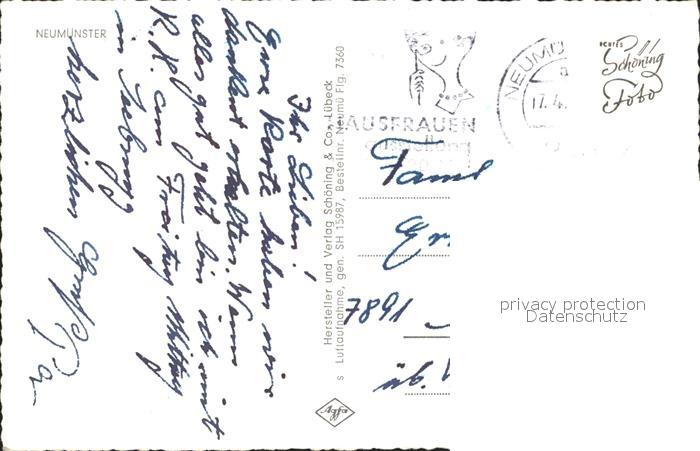 NEUMÜNSTER
Ihr Lieben!
Eure Karte haben wir
dankend erhalten. Wenn
alles gut geht bin ich mit
K. H. am Freitag Mittag
in
herzlichen Grüße
Hersteller und Verlag Schöning & Co., Lübeck
s Luftaufnahme, gen. SH 15987, Bestellnr. Neumü Flg. 7360
Agfa
HAUSFRAUEN
NEUMÜ
a
17.4.
ECHTES
Schöning
Foto
Fam
7891
üb.
privacy protection
Datenschutz